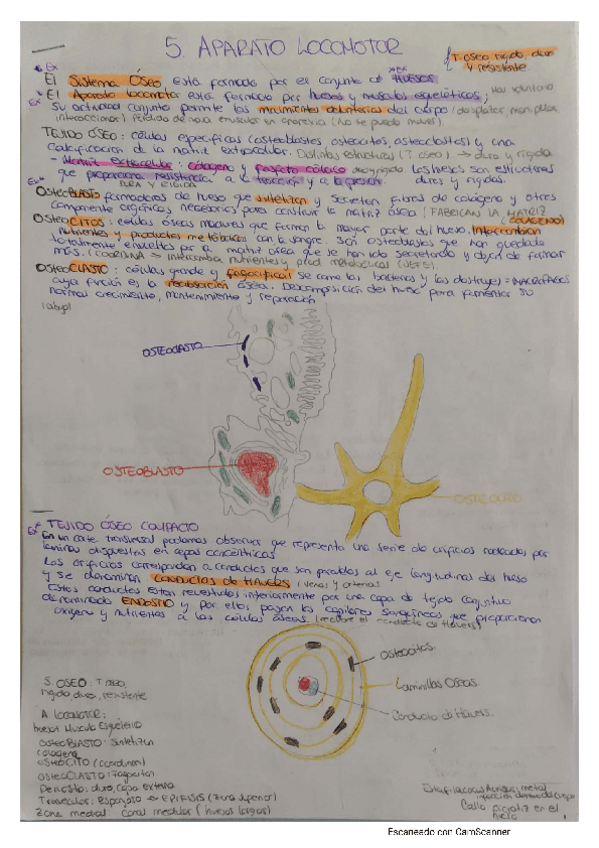 5. APARATO LOCOMOTOR
T. óseo rígido, duro
y resistente
Ex
El Sistema Óseo está formado por el conjunto de HUESOS.
El Aparato locomotor está formado por huesos y músculos esqueléticos;
Ex
Su actividad conjunta permite los movimientos voluntarios del cuerpo (desplazar, manipular,
interaccionar) Pérdida de masa muscular en anorexia (No se puede mover).
TEJIDO ÓSEO: células específicas (osteoblastos, osteocitos, osteoclastos) y una
calcificación de la matriz extracelular. Distintas estructuras (T. óseo) → dura y rígida
- Matriz extracelular: colágeno y fosfato cálcico los huesos son estructuras
que proporciona resistencia a la tracción y a la presión. duras y rígidas.
DURA Y RÍGIDA
Ex
OsteoBLASTO formadoras de hueso que sintetizan y secretan fibras de colágeno y otros
componente orgánicos necesarios para construir la matriz ósea (FABRICAN LA MATRIZ
(COLÁGENO)
OsteoCITOS: células óseas maduras que forman la mayor parte del hueso. Intercambian
nutrientes y productos metabólicos con la sangre. Son osteoblastos que han quedado
totalmente envueltos por la matriz ósea que se han ido secretando y dejan de formar
más. (COORDINA → intercambia nutrientes y prod. metabólicos (JEFE).
OsteoCLASTO: células grande y fagocíticas se come las bacterias y las destruye) = MACRÓFAGOS
cuya función es la reabsorción ósea. Descomposición del hueso para fomentar su
normal crecimiento, mantenimiento y reparación.
OSTEOCLASTO
OSTEOBLASTO
OSTEOCITO
Ex
TEJIDO ÓSEO COMPACTO
En un corte transversal podemos observar que representa una serie de orificios rodeados por
láminas dispuestas en capas concéntricas
Los orificios corresponden a conductos que son paralelos al eje longitudinal del hueso
y se denominan CONDUCTOS DE HAVERS (venas y arterias
Estos conductos están revestidos interiormente por una capa de tejido conjuntivo
denominado ENDOSTIO y por ellos pasan los capilares sanguíneos que proporcionan
oxígeno y nutrientes a las células óseas. (recubre el conducto de Havers)
Osteocitos.
Laminillas Óseas.
Conducto de Havers.
S. ÓSEO: T. óseo,
rígido duro, resistente
A. LOCOMOTOR:
huesos Músculo Esquelético
OSTEOBLASTO: Sintetizan
colágeno
OSTEOCITO (coordinan)
OSTEOCLASTO: Fagocitan
Periostio: duro, capa externa
Trabecular: esponjoso → EPÍFISIS (zona superior)
Zona medial canal medular (huesos largos)
Callo
en el
Escaneado con CamScanner